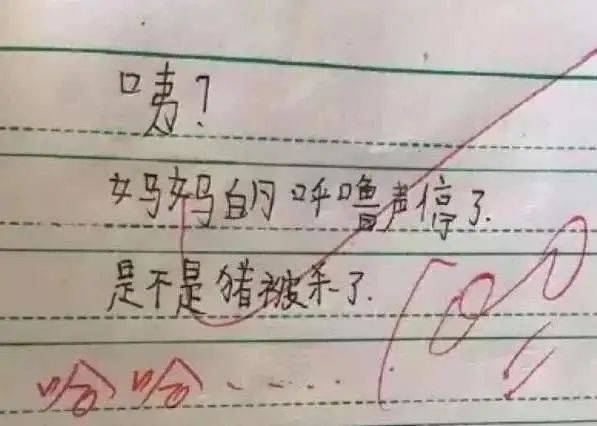 咦？
妈妈的呼噜声停了.
是不是猪被杀了.
哈哈......
100